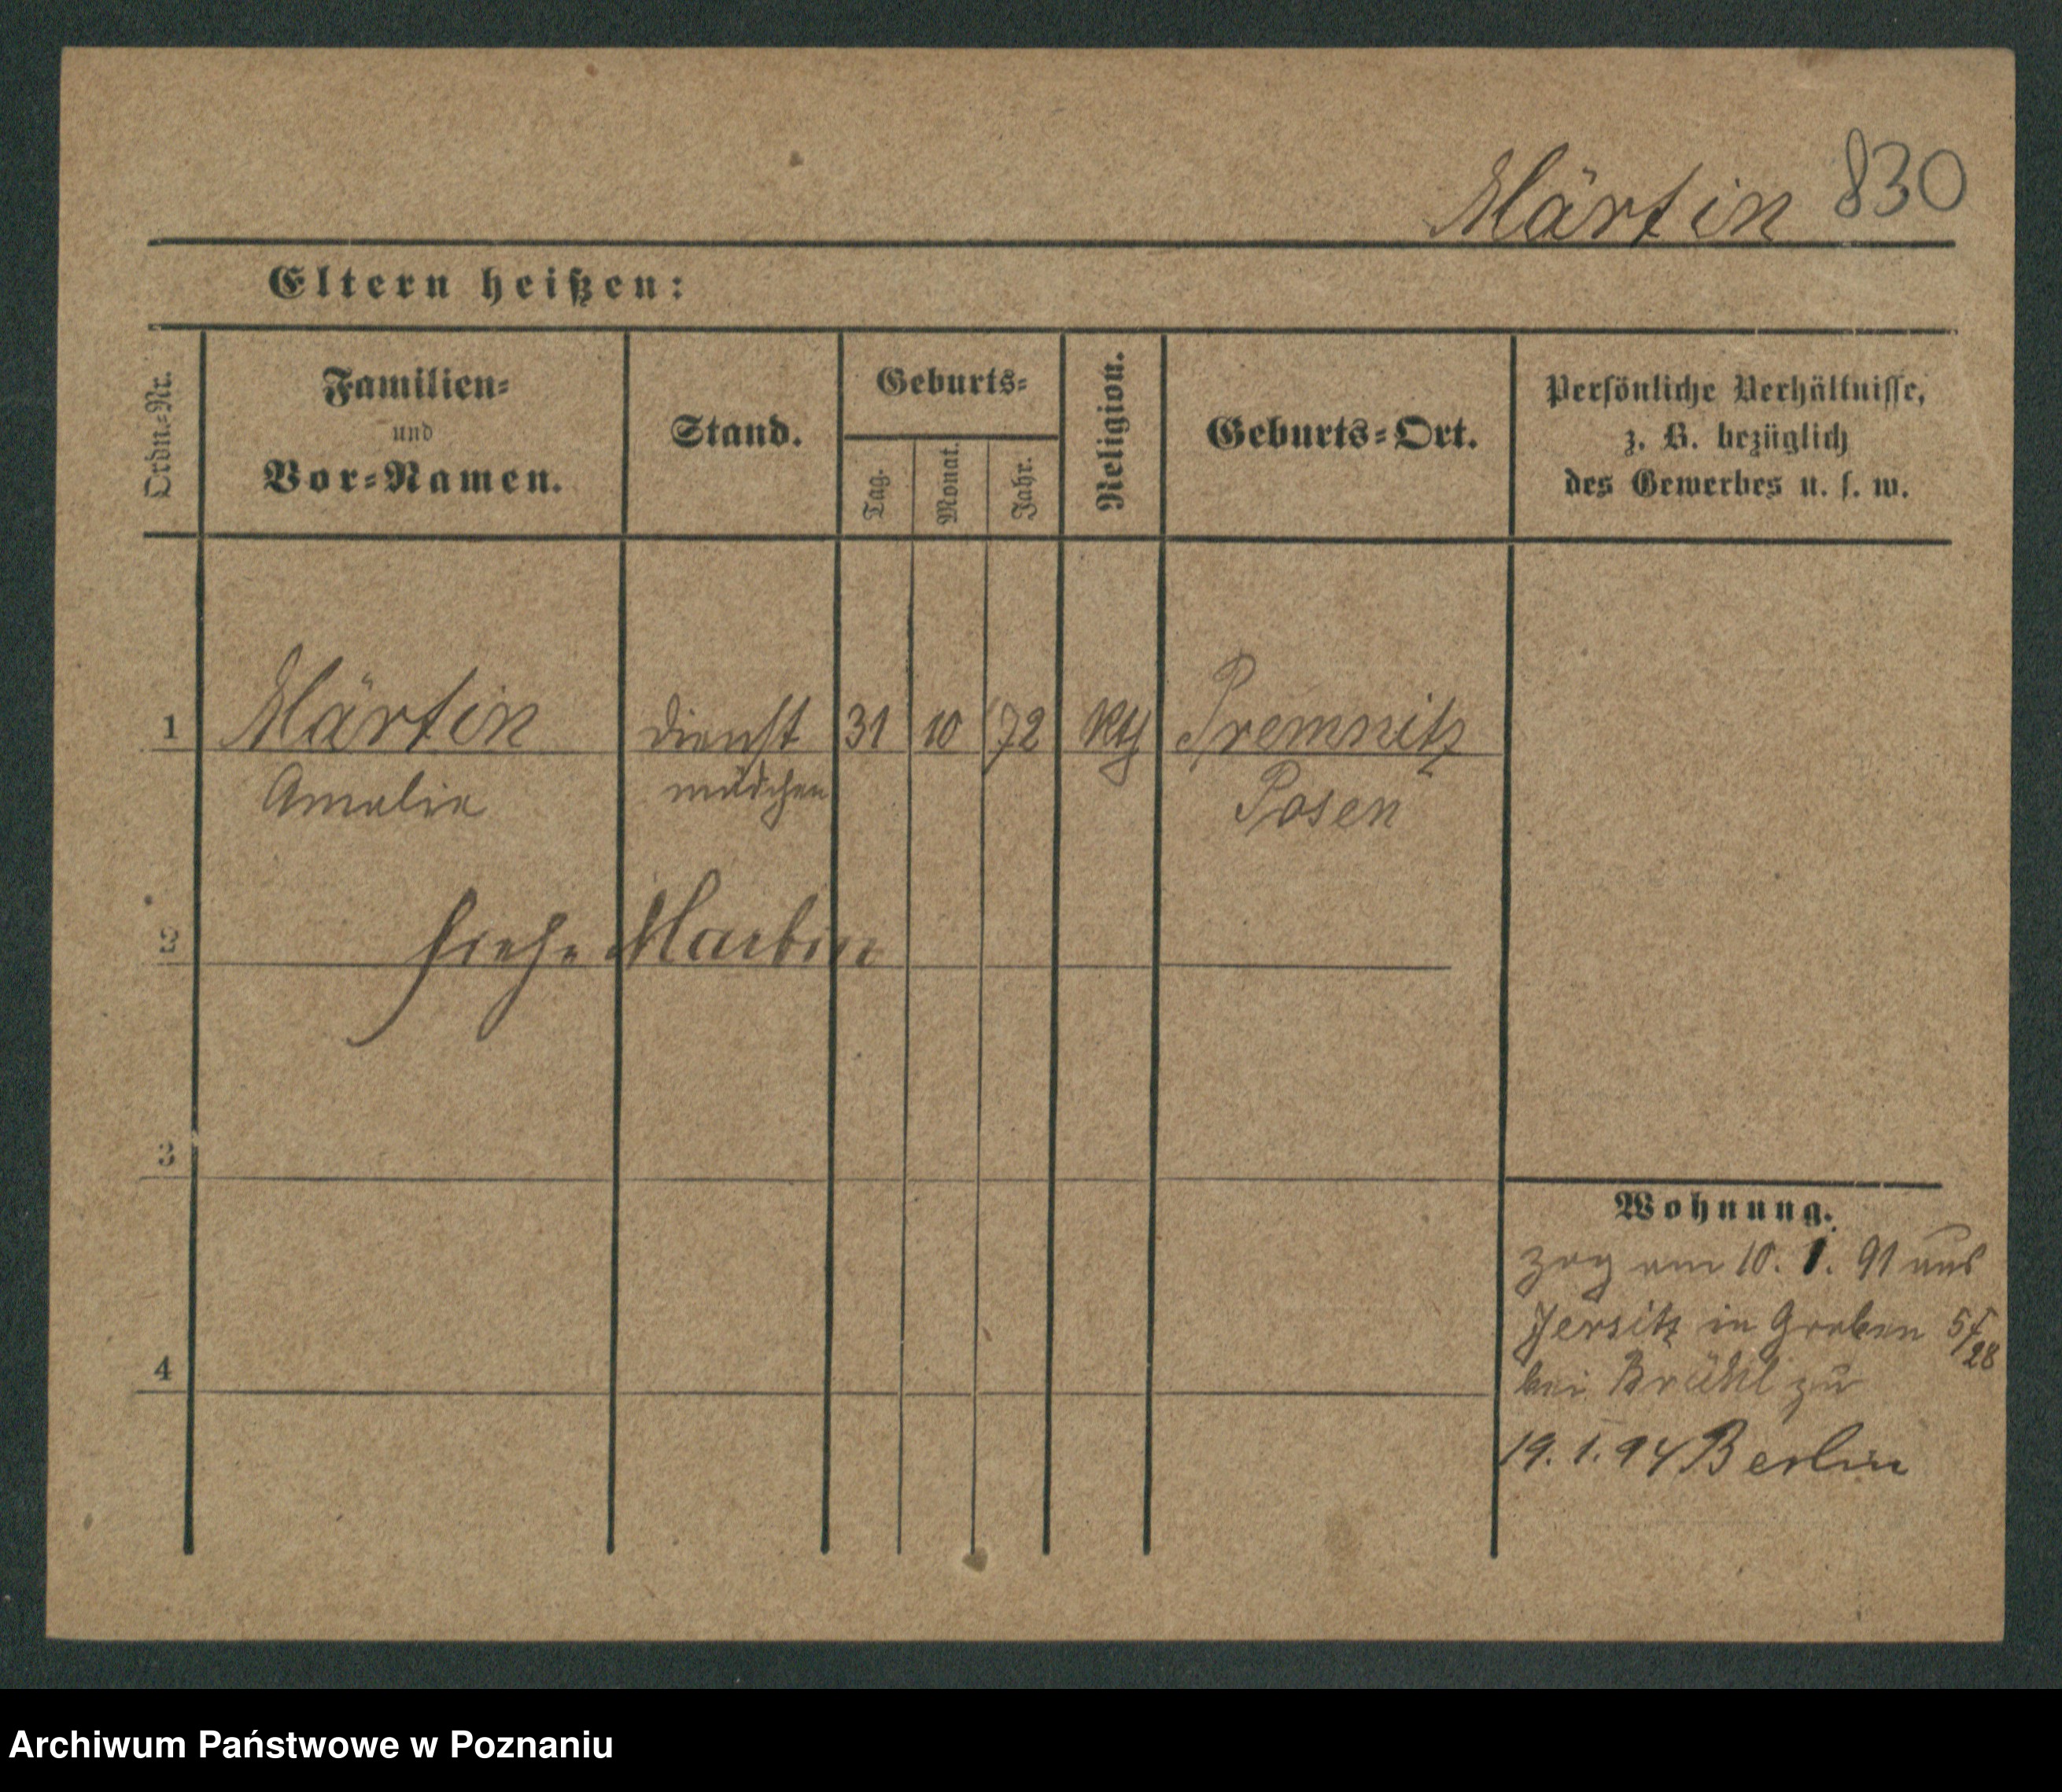 Märtin 830
Eltern heißen:
Ordn.=Nr.
Familien=
und
Vor=Namen.
Stand.
Geburts=
Tag.
Monat.
Jahr.
Religion.
Geburts=Ort.
Persönliche Verhältnisse,
z. B. bezüglich
des Gewerbes u. s. w.
1 Märtin Dienst 31 10 72 kth Premnitz
Amalie mädchen Posen
2 siehe Martin
3
4
Wohnung.
zog am 10. 1. 91 aus
Jersitz in Graben 5
28
bei Brühl zu
19. 1. 94 Berlin
Archiwum Państwowe w Poznaniu